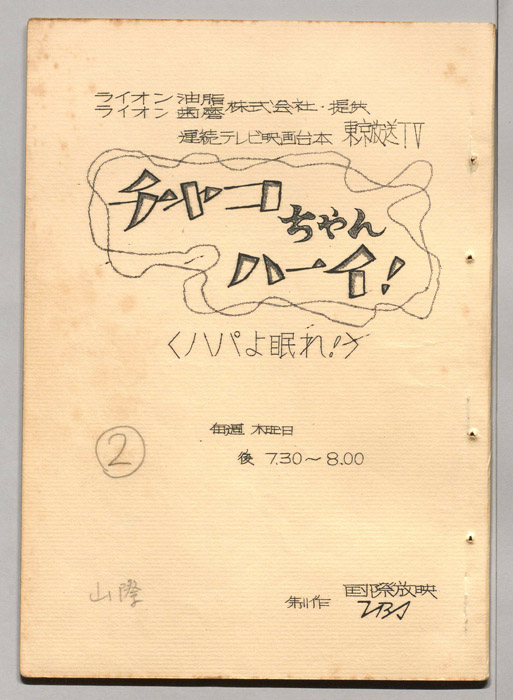 ライオン 油脂
ライオン 歯磨 株式会社・提供
連続テレビ映画台本 東京放送TV
チャコ
ちゃん
ハーイ!
〈パパよ眠れ!〉
毎週 木曜日
後 7.30〜8.00
②
山際
制作 国際放映
TBS